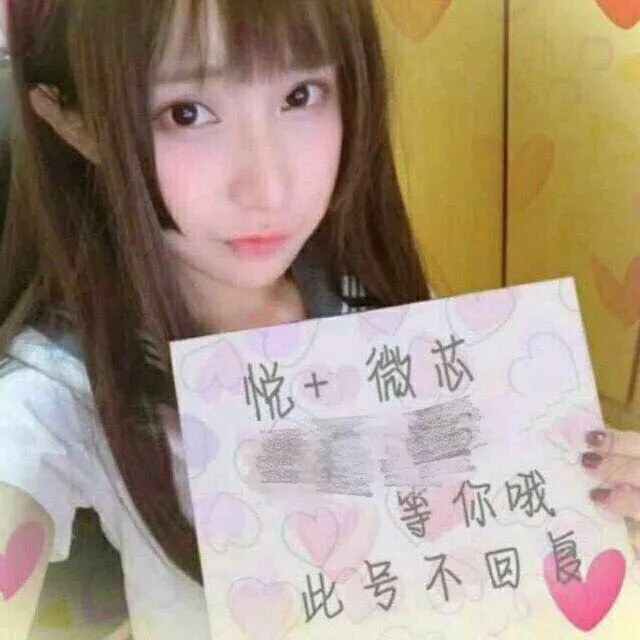 悦+微芯
等你哦
此号不回复